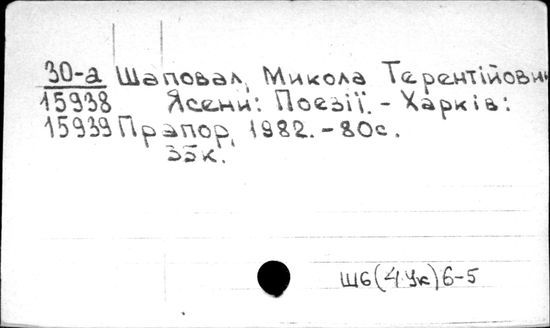 30-а Шаповал, Микола Терентійови
15938 Ясени: Поезії. - Харків:
15939 Прапор, 1982. - 80с.
35к.
Ш6(4Ук)6-5